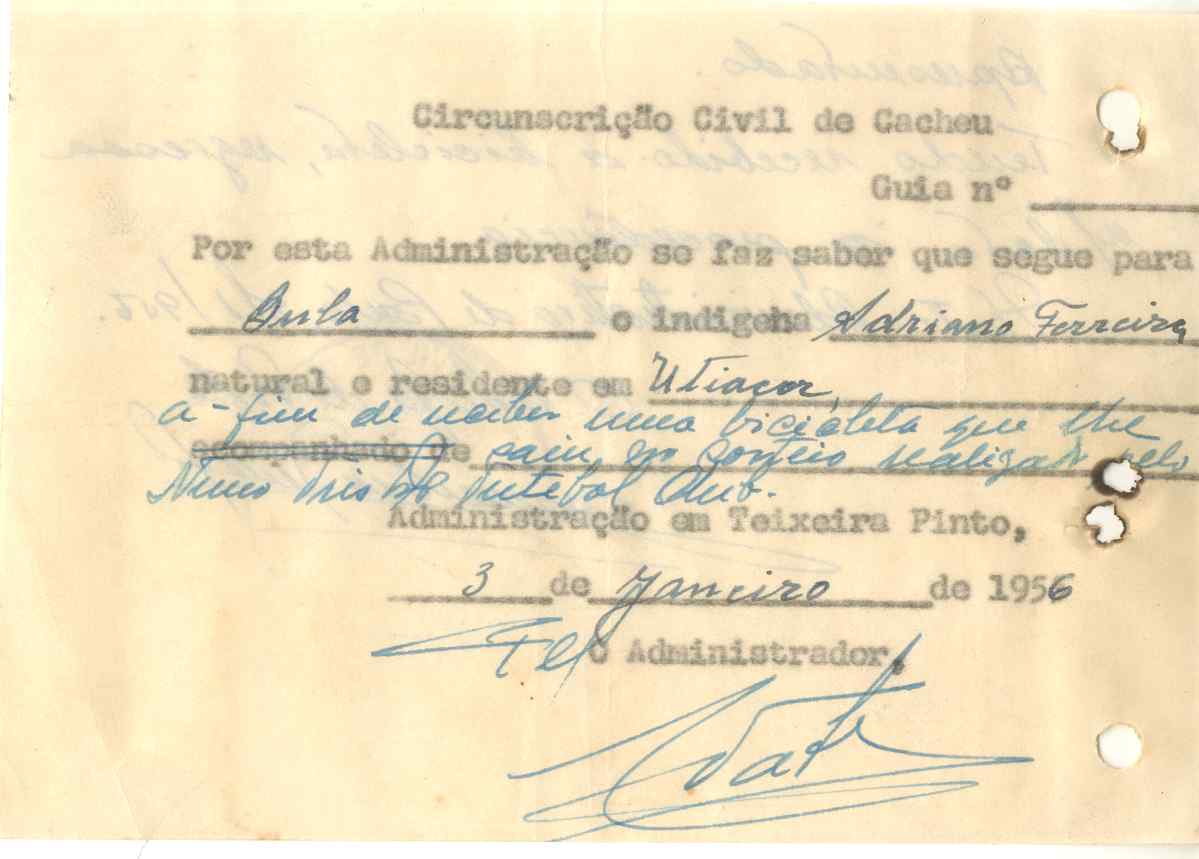 Circunscrição Civil de Cacheu
Guia nº
Por esta Administração se faz saber que segue para
Bula o indigena Adriano Ferreira
natural e residente em Utiacor,
a-fim de receber uma bicicleta que lhe
acompanhado de saiu em sorteio realizado pelo
Nuno Tristão Futebol Club.
Administração em Teixeira Pinto,
3 de Janeiro de 1956
Pel O Administrador,